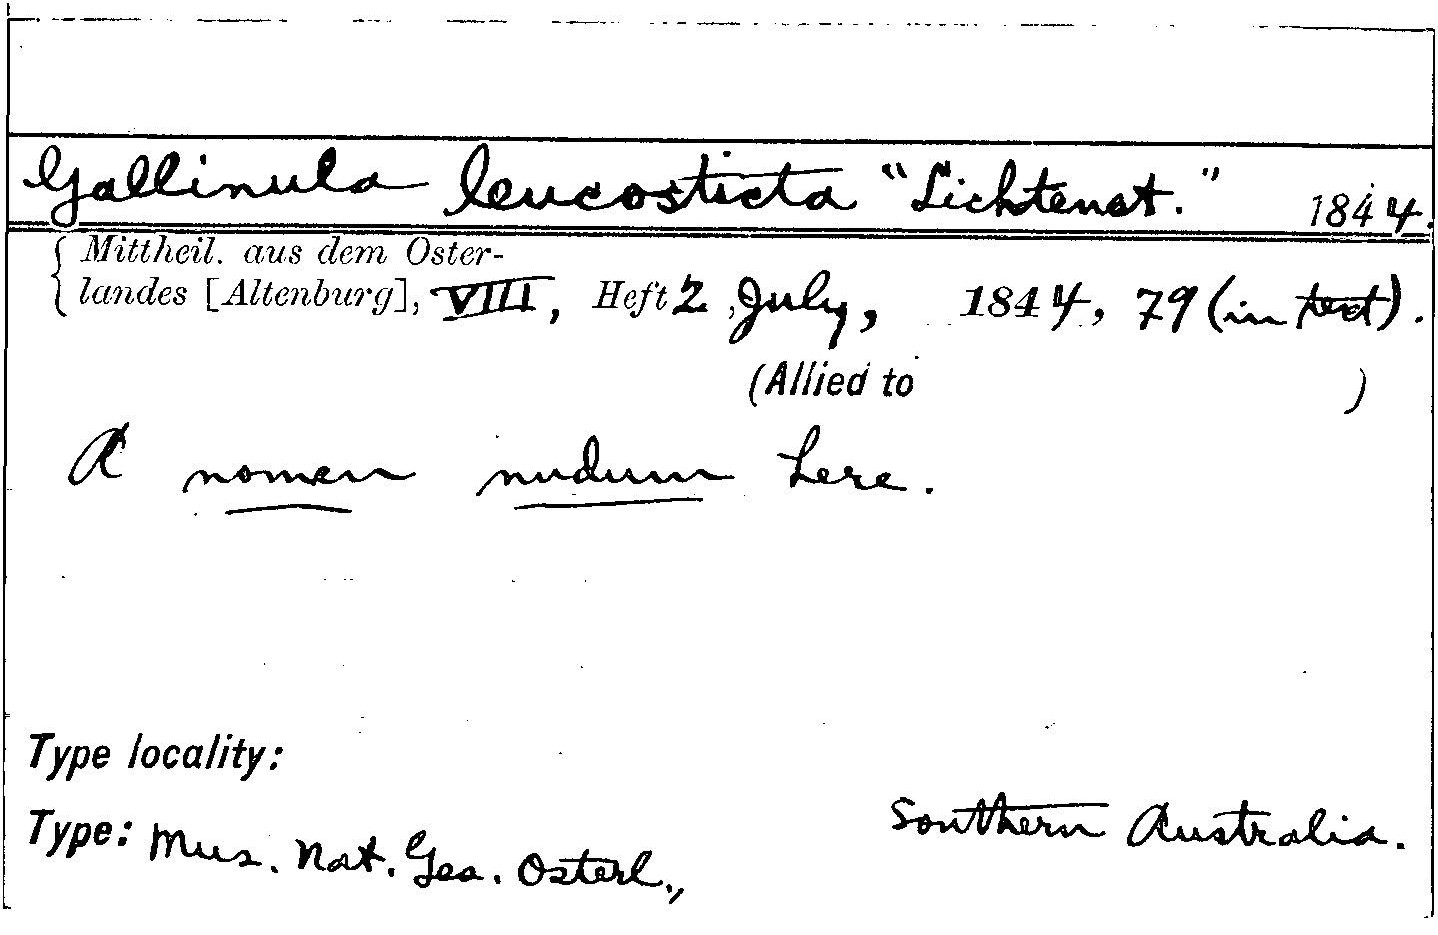 Gallinula leucosticta "Lichtenst." 1844.
Mittheil. aus dem Oster-
landes [Altenburg], VIII, Heft 2, July, 1844, 79 (in text).
(Allied to )
A nomen nudum here.
Type locality:
Southern Australia.
Type: Mus. Nat. Ges. Osterl.,